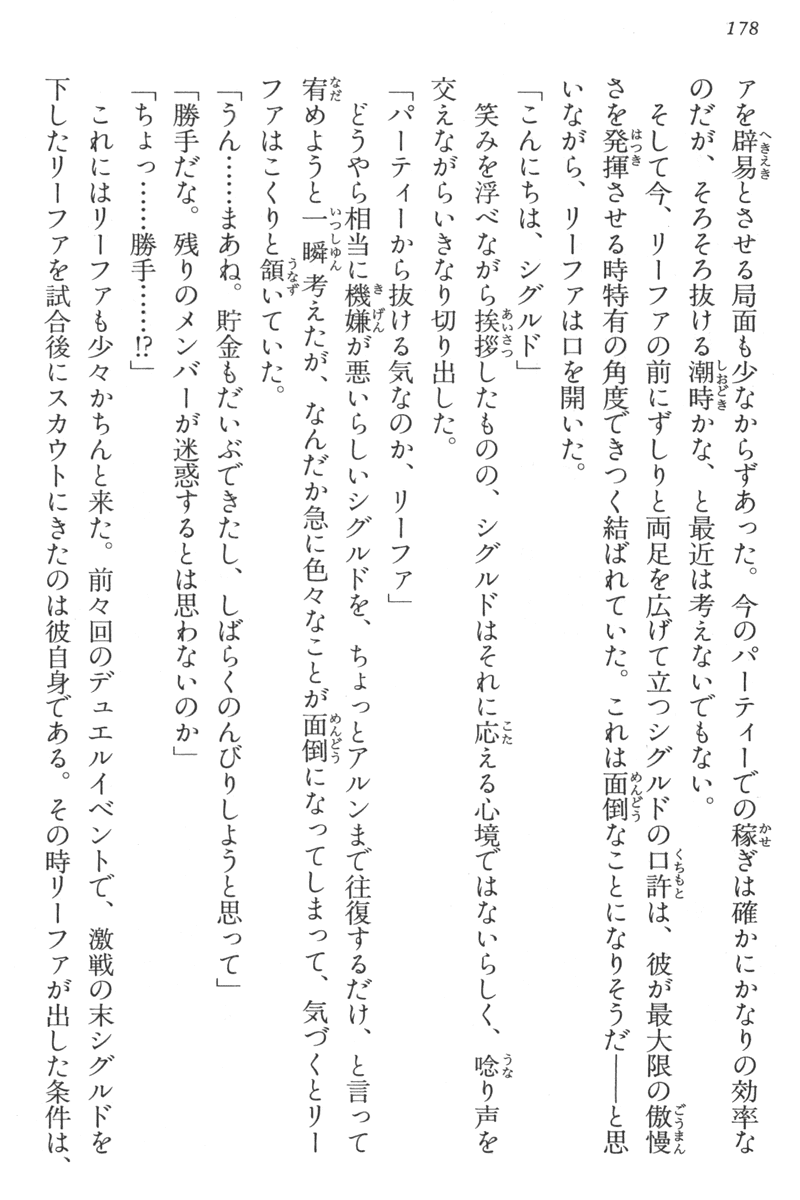 178
アを辟易とさせる局面も少なからずあった。今のパーティーでの稼ぎは確かにかなりの効率な
のだが、そろそろ抜ける潮時かな、と最近は考えないでもない。
そして今、リーファの前にずしりと両足を広げて立つシグルドの口許は、彼が最大限の傲慢
さを発揮させる時特有の角度できつく結ばれていた。これは面倒なことになりそうだ――と思
いながら、リーファは口を開いた。
「こんにちは、シグルド」
笑みを浮べながら挨拶したものの、シグルドはそれに応える心境ではないらしく、唸り声を
交えながらいきなり切り出した。
「パーティーから抜ける気なのか、リーファ」
どうやら相当に機嫌が悪いらしいシグルドを、ちょっとアルンまで往復するだけ、と言って
宥めようと一瞬考えたが、なんだか急に色々なことが面倒になってしまって、気づくとリー
ファはこくりと頷いていた。
「うん……まあね。貯金もだいぶできたし、しばらくのんびりしようと思って」
「勝手だな。残りのメンバーが迷惑するとは思わないのか」
「ちょっ……勝手……!?」
これにはリーファも少々かちんと来た。前々回のデュエルイベントで、激戦の末シグルドを
下したリーファを試合後にスカウトにきたのは彼自身である。その時リーファが出した条件は、